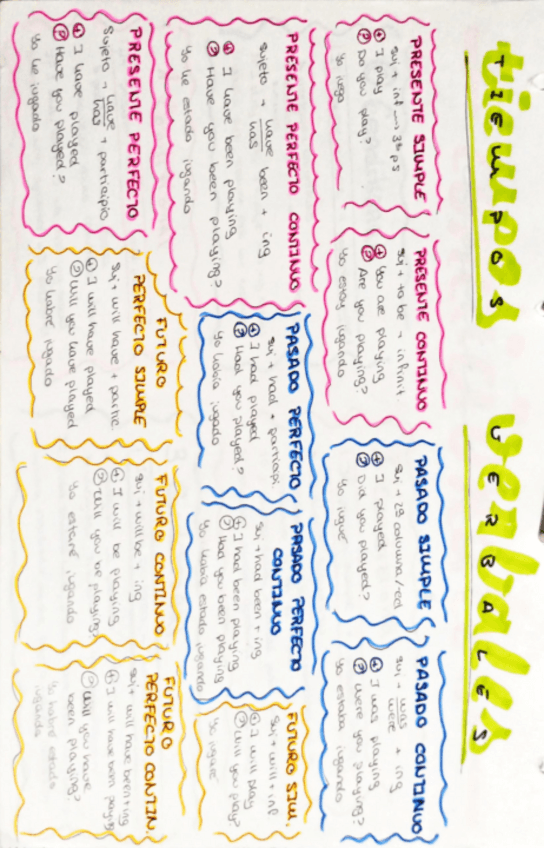 tiempos
TIEMPOS
verbales
VERBALES
PRESENTE SIMPLE
suj + inf → 3ª ps
⊕ I play
? Do you play?
Yo juego
PRESENTE CONTINUO
suj + to be + infinit
⊕ You are playing
? Are you playing?
Yo estoy jugando
PASADO SIMPLE
suj + 2ª columna/ed
⊕ I played
? Did you played?
Yo jugué
PASADO CONTINUO
suj + was + ing
were
⊕ I was playing
? Were you playing?
Yo estaba jugando
PRESENTE PERFECTO CONTINUO
sujeto + have been + ing
has
⊕ I have been playing
? Have you been playing?
Yo he estado jugando
PASADO PERFECTO
suj + had + particip.
⊕ I had played
? Had you played?
Yo había jugado
PASADO PERFECTO
CONTINUO
suj + had been + ing
⊕ I had been playing
? Had you been playing
Yo había estado jugando
FUTURO SIM.
suj + will + inf
⊕ I will play
? Will you play?
Yo jugaré
PRESENTE PERFECTO
Sujeto + have + participio
has
⊕ I have played
? Have you played?
Yo he jugado
FUTURO
PERFECTO SIMPLE
suj + will have + partic
⊕ I will have played
? Will you have played
Yo habré jugado
FUTURO CONTINUO
suj + will be + ing
⊕ I will be playing
? Will you be playing?
Yo estaré jugando
FUTURO
PERFECTO CONTIN.
suj + will have been + ing
⊕ I will have been playing
? Will you have
been playing?
Yo habré estado
jugando